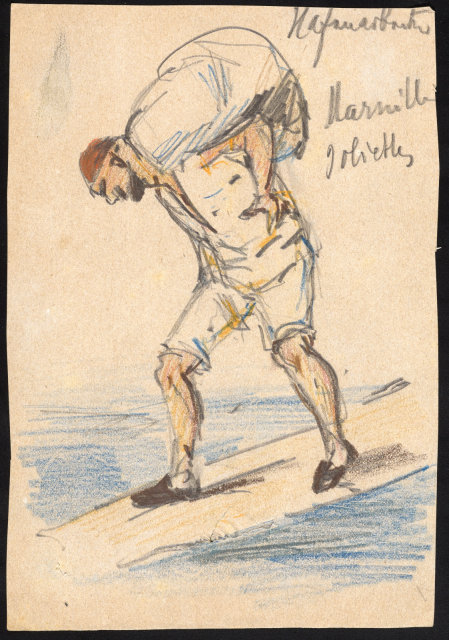 Hafenarbeiter
Marseille
Joliette